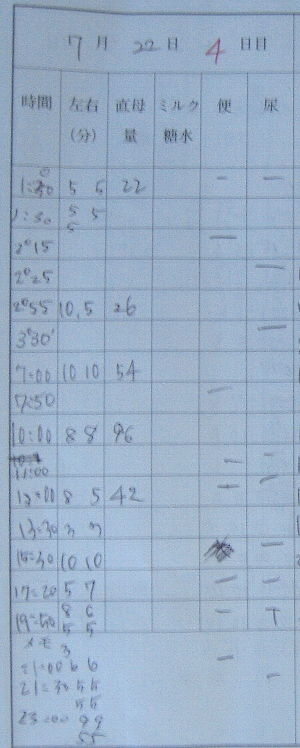 7月 22日 4 日目
時間 左右 直母 ミルク 便 尿
(分) 量 糖水
5 5 22 一 一
1:30 5 5
5
2°15 一
2°25 一
2°55 10,5 26
3°30' 一
7:00 10 10 54
7:50 一
10:00 8 8 96
11:00 一 一
8 5 42 一 一
3 7
10 10 一
17:20 5 7 一 一
8 6 一 T
5 5
メモ 3
21:00 6 6 一
21:30 5 5 一
5 5
23:00 9 9
5 5